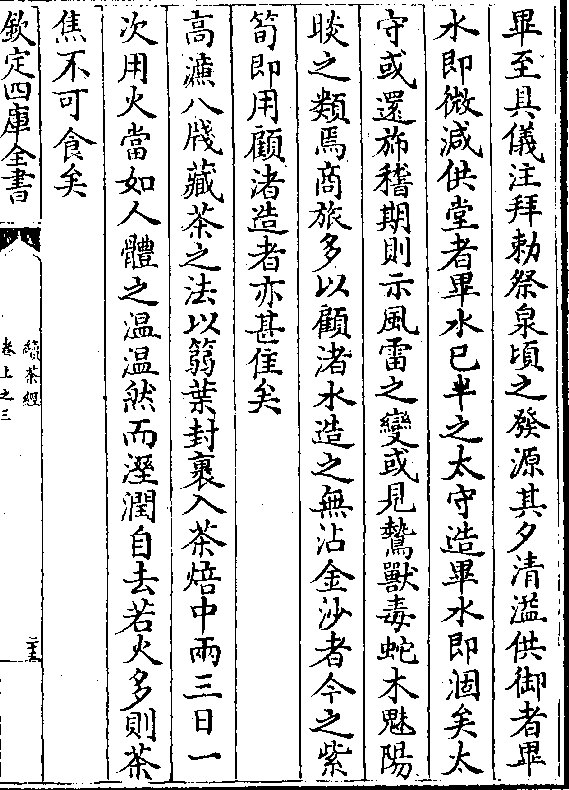 畢至具儀注拜勅祭泉頃之發源其夕清溢供御者畢
水即微減供堂者畢水已半之太守造畢水即涸矣太
守或還斾稽期則示風雷之變或見鷙獸毒蛇木魅陽
睒之類焉商旅多以顧渚水造之無沾金沙者今之紫
筍即用顧渚造者亦甚佳矣
高濂八牋藏茶之法以篛葉封裹入茶焙中兩三日一
次用火當如人體之溫溫然而溼潤自去若火多則茶
焦不可食矣
欽定四庫全書
續茶經
卷上之三